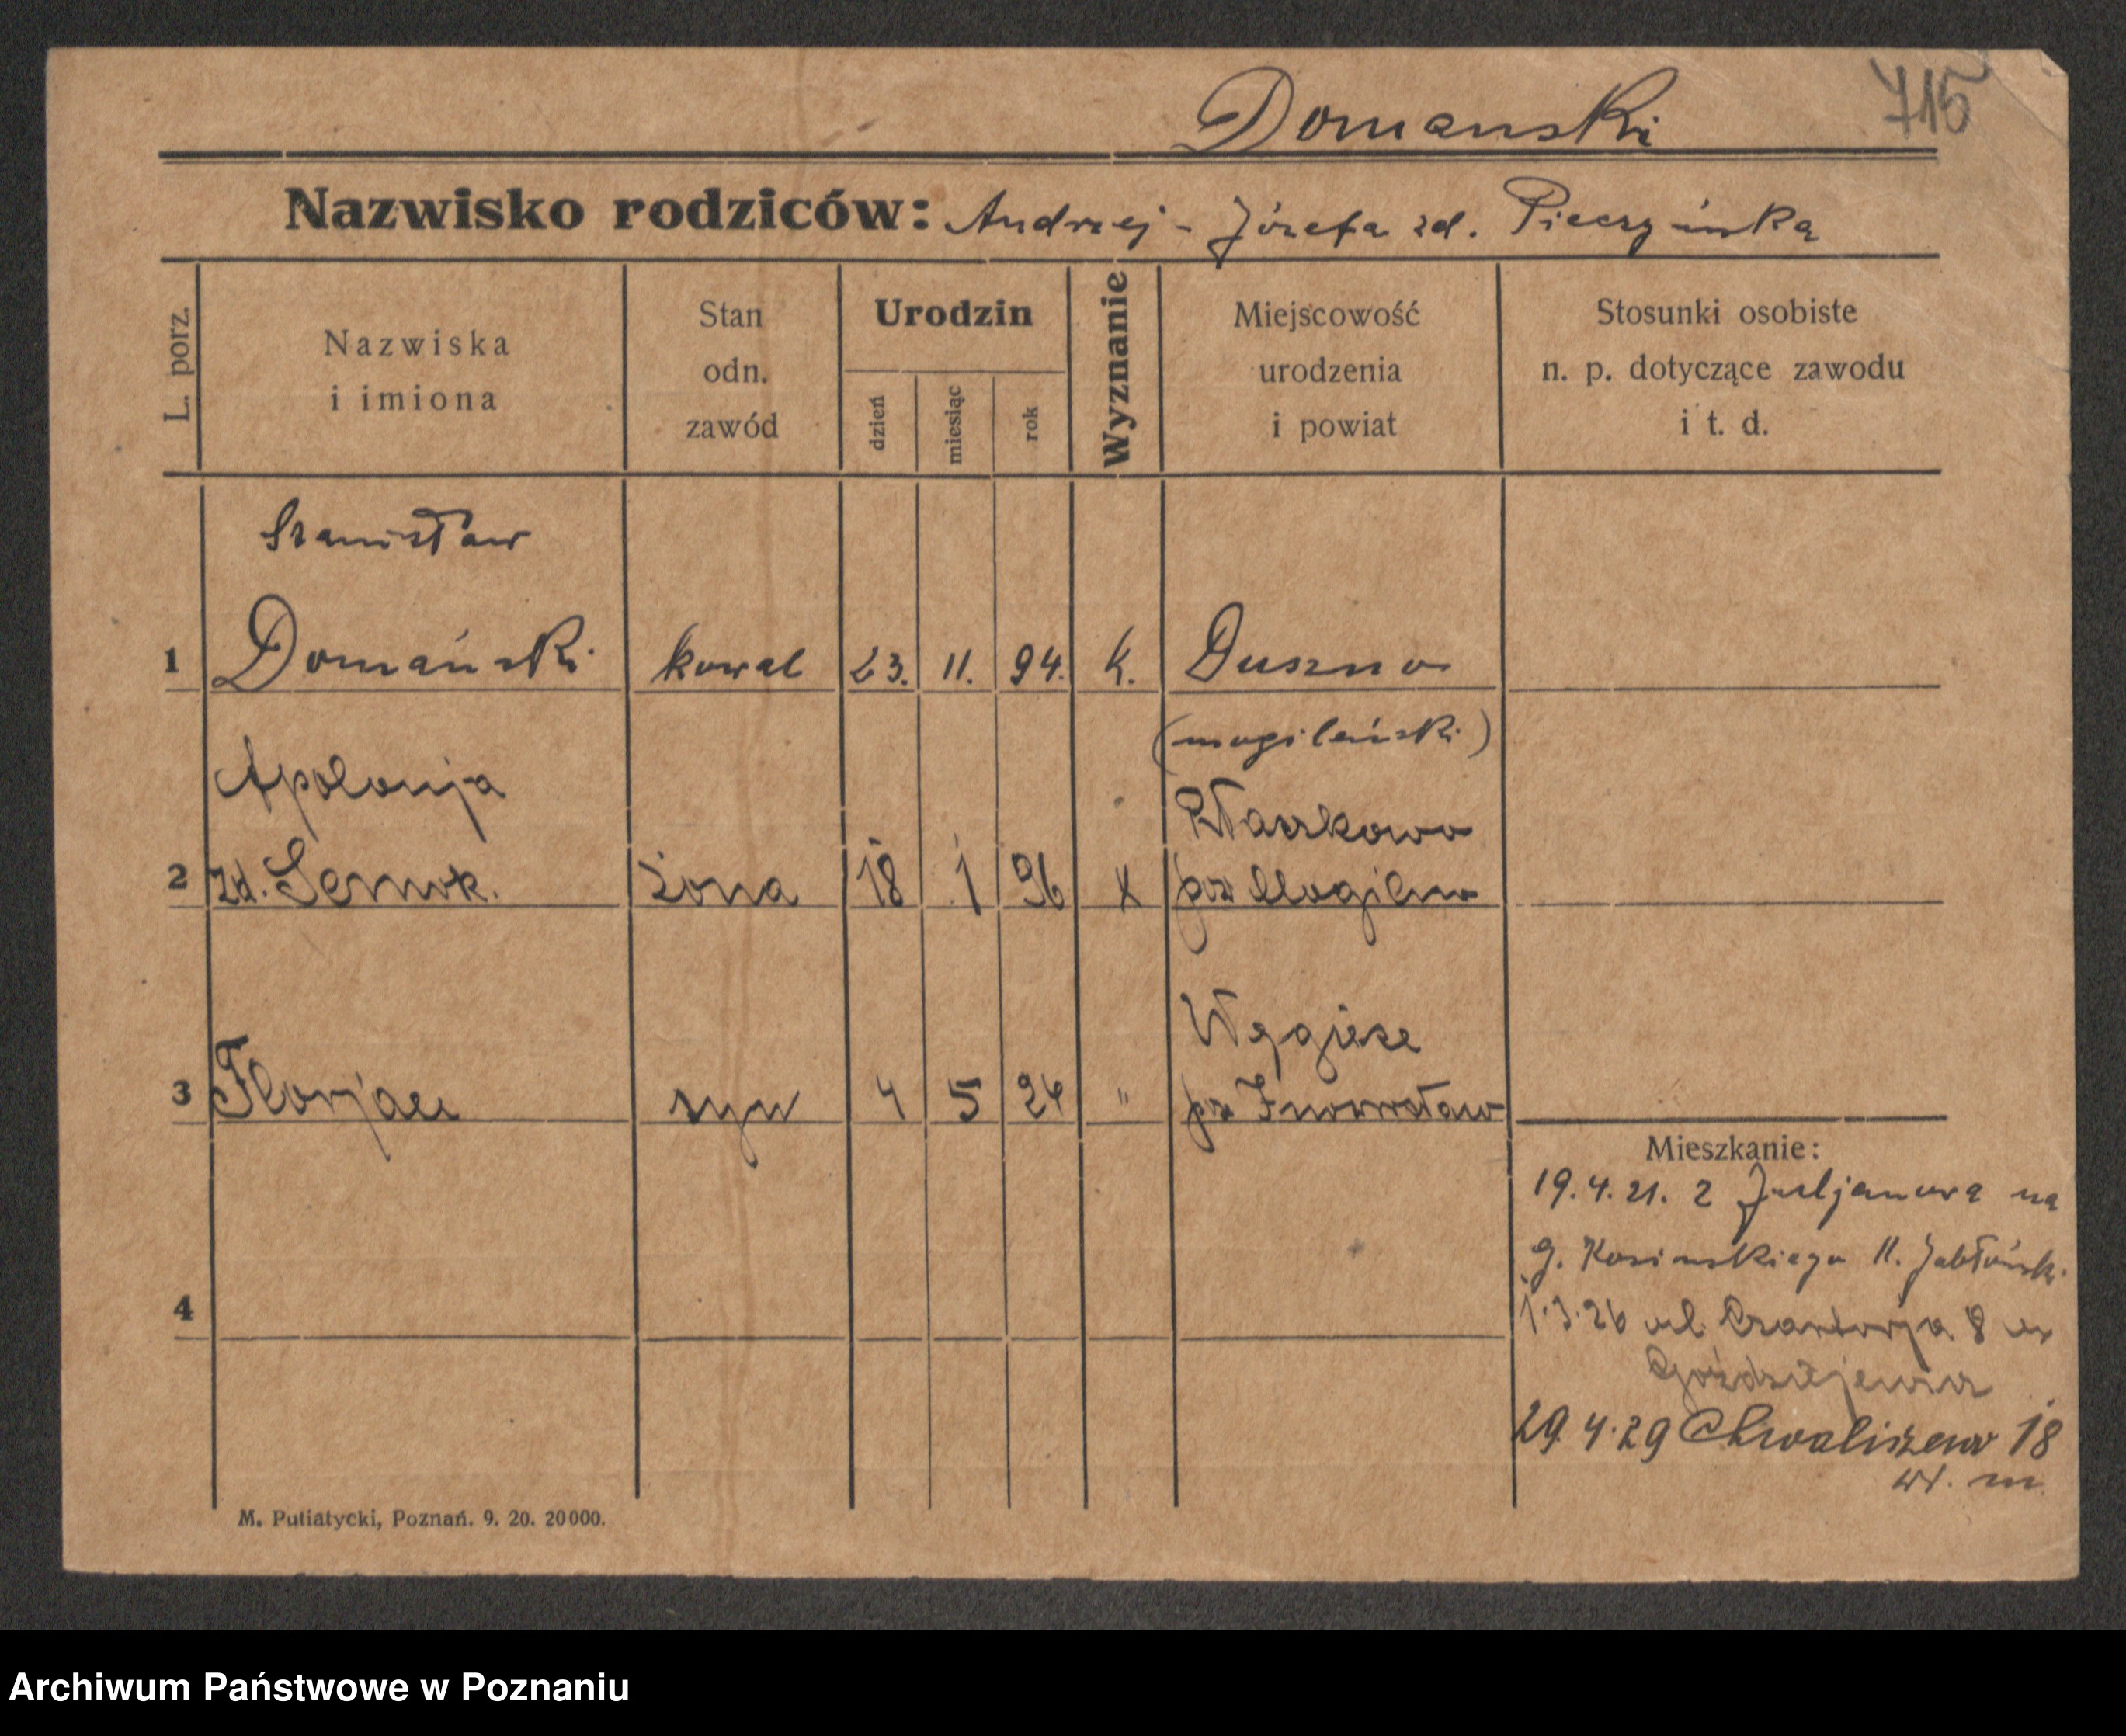 715
Domanski
Nazwisko rodziców: Andrzej - Józefa zd. Pieczyńska
L. porz.
Nazwiska
i imiona
Stan
odn.
zawód
Urodzin
dzień
miesiąc
rok
Wyznanie
Miejscowość
urodzenia
i powiat
Stosunki osobiste
n. p. dotyczące zawodu
i t. d.
Stanisław
1 Domański kowal 23. 11. 94. K. Duszno
(mogileński)
Apolonja
2 zd. żona 18 1 96 K pow Mogilno
3 Florjan syn 4 5 24 " pow Inowrocław
Mieszkanie:
19.4.21. 2 Juljanowa na
g. Kosinskiego 11. Jabłoński
1.3.26 ul. Czartorja 8 u
29.4.29 Chwaliszewo 18
wł. m.
4
M. Putiatycki, Poznań. 9. 20. 20000.
Archiwum Państwowe w Poznaniu